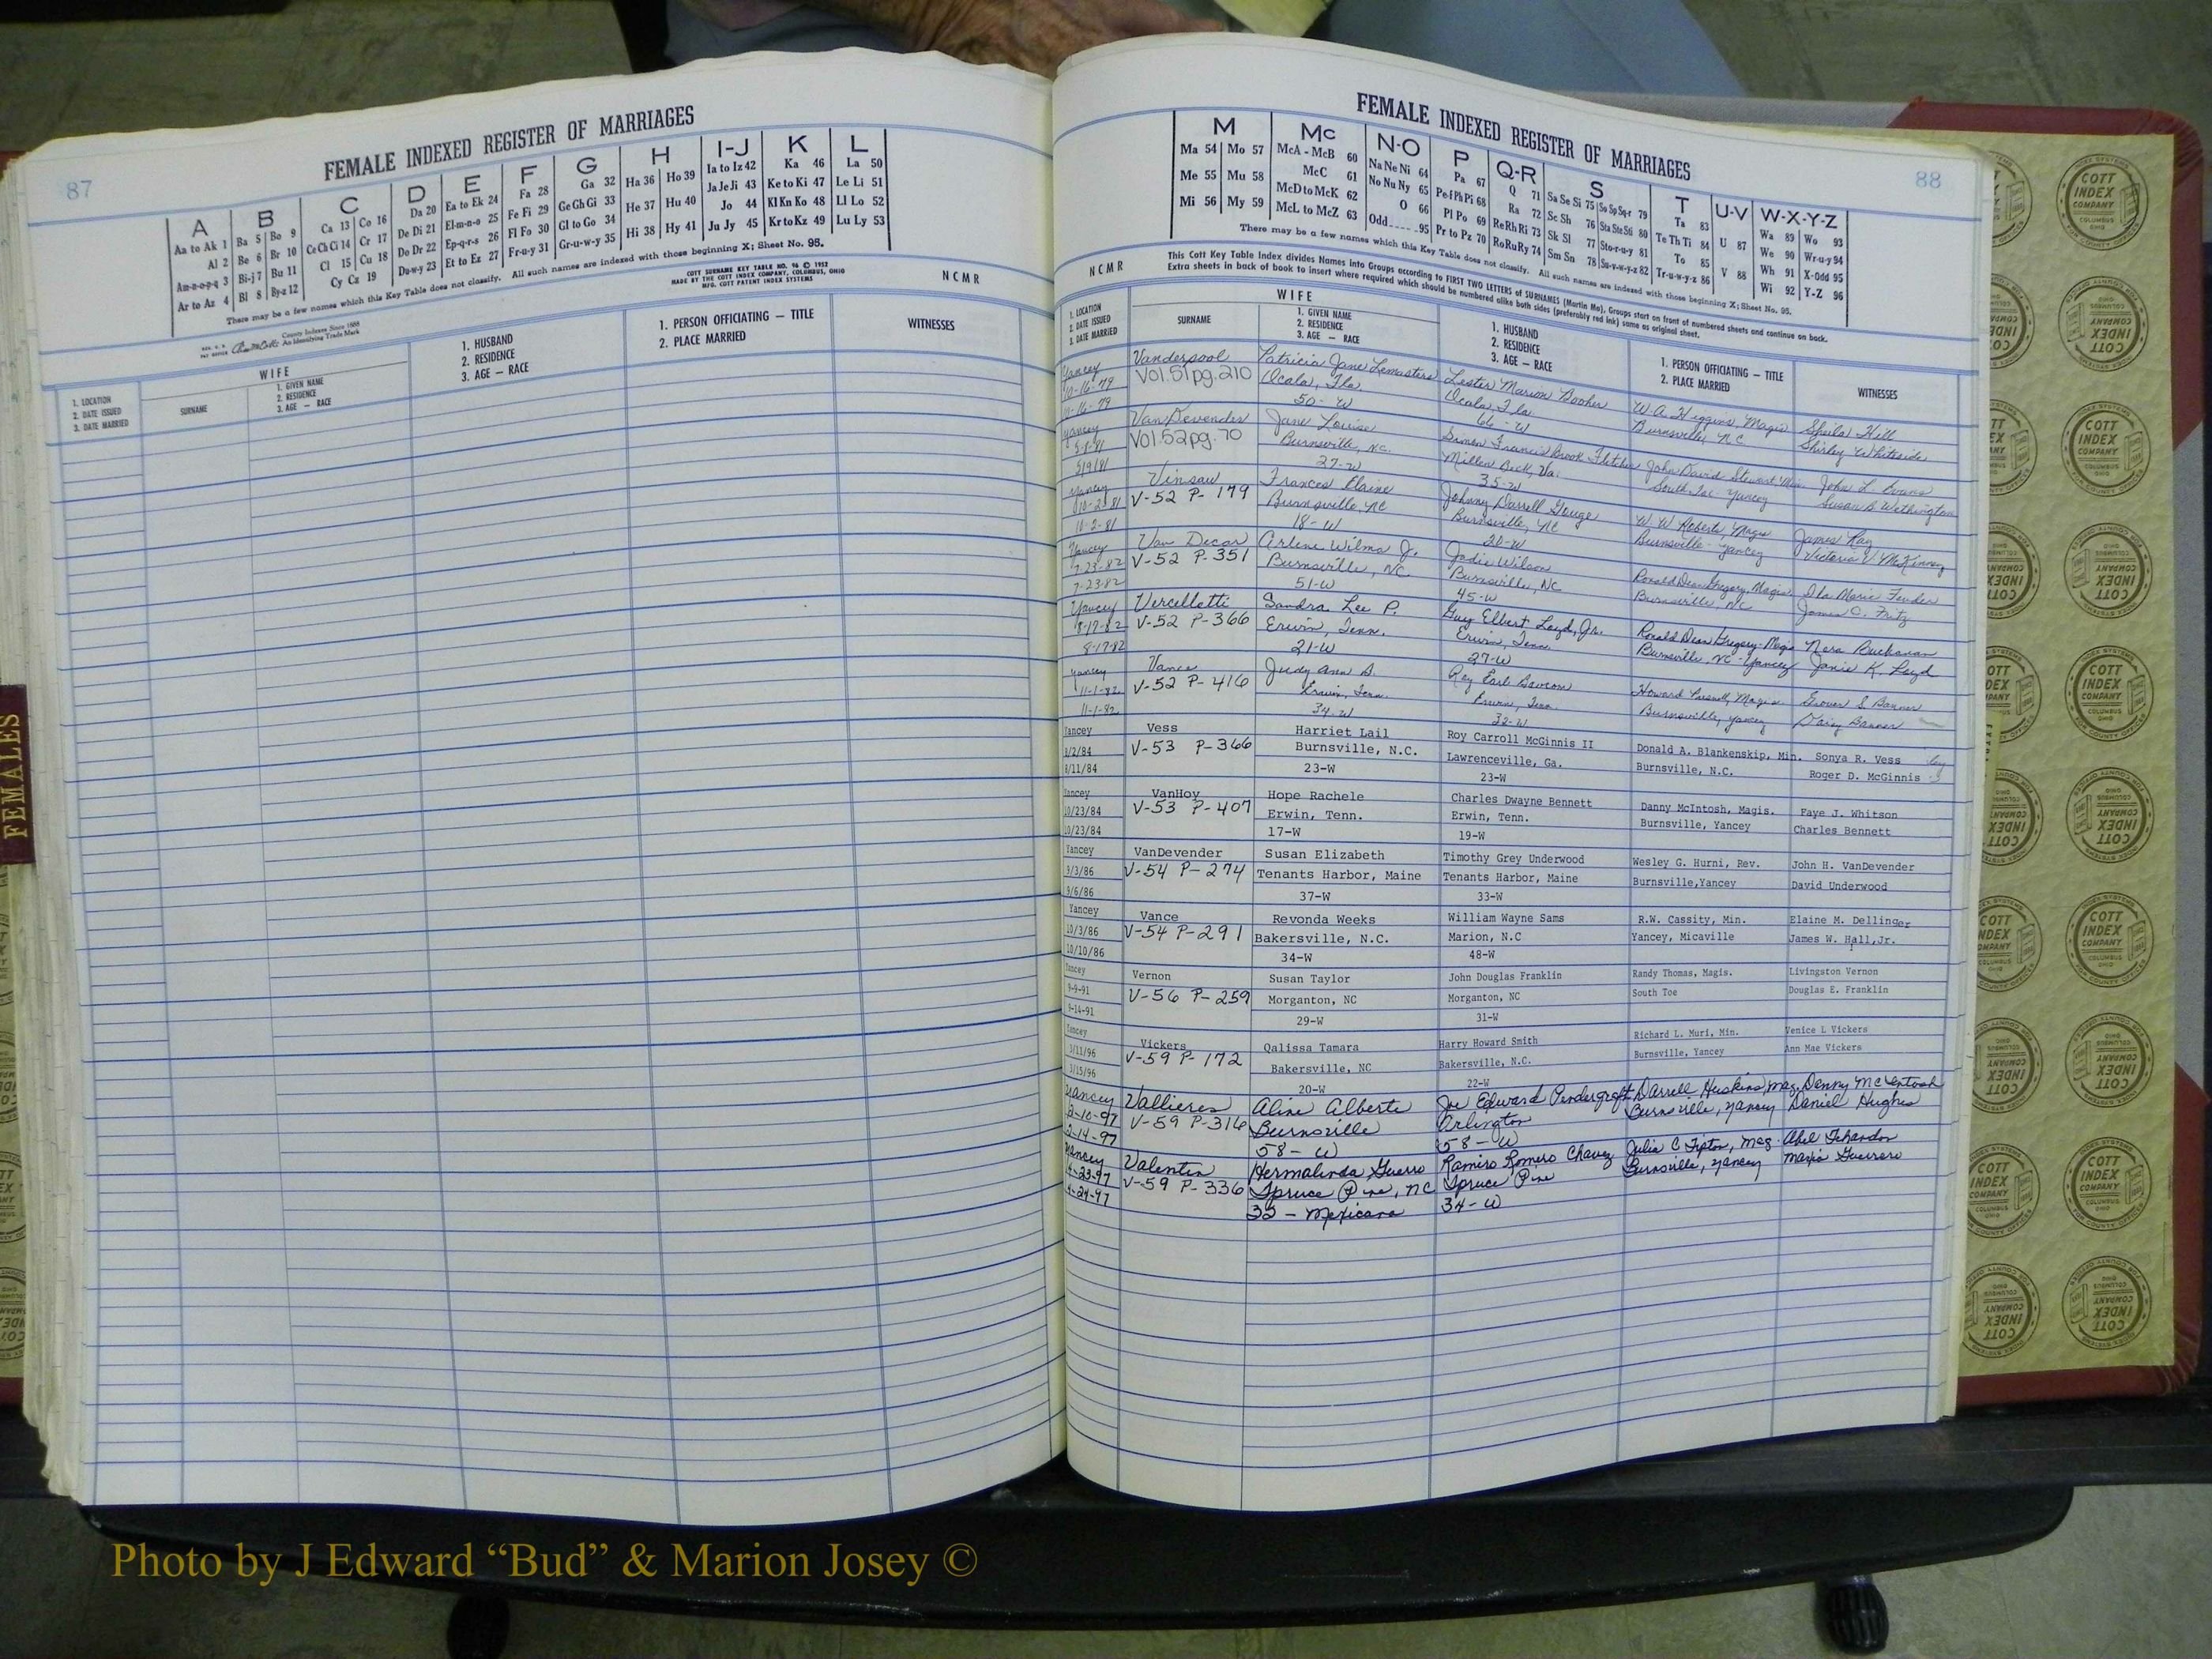 87
FEMALE INDEXED REGISTER OF MARRIAGES
A
Aa to Ak 1
Al 2
Am-n-o-p-q 3
Ar to Az 4
B
Ba 5 Bo 9
Be 6 Br 10
Bi-j 7 Bu 11
Bl 8 By-z 12
C
Ca 13 Co 16
Ce Ch Ci 14 Cr 17
Cl 15 Cu 18
Cy Cz 19
D
Da 20
De Di 21
Do Dr 22
Du-w-y 23
E
Ea to Ek 24
El-m-n-o 25
Ep-q-r-s 26
Et to Ez 27
F
Fa 28
Fe Fi 29
Fl Fo 30
Fr-u-y 31
G
Ga 32
Ge Gh Gi 33
Gl to Go 34
Gr-u-w-y 35
H
Ha 36 Ho 39
He 37 Hu 40
Hi 38 Hy 41
I-J
Ia to Iz 42
Ja Je Ji 43
Jo 44
Ju Jy 45
K
Ka 46
Ke to Ki 47
Kl Kn Ko 48
Kr to Kz 49
L
La 50
Le Li 51
Ll Lo 52
Lu Ly 53
There may be a few names which this Key Table does not classify. All such names are indexed with those beginning X; Sheet No. 95.
County Indexes Since 1888
An Identifying Trade Mark
COTT SURNAME KEY TABLE NO. 96 © 1952
MADE BY THE COTT INDEX COMPANY, COLUMBUS, OHIO
MFG. COTT PATENT INDEX SYSTEMS
NCMR
1. LOCATION
2. DATE ISSUED
3. DATE MARRIED
WIFE
SURNAME
1. GIVEN NAME
2. RESIDENCE
3. AGE — RACE
1. HUSBAND
2. RESIDENCE
3. AGE — RACE
1. PERSON OFFICIATING — TITLE
2. PLACE MARRIED
WITNESSES
FEMALES
FEMALE INDEXED REGISTER OF MARRIAGES
88
M
Ma 54 Mo 57
Me 55 Mu 58
Mi 56 My 59
Mc
McA - McB 60
McC 61
McD to McK 62
McL to McZ 63
N-O
Na Ne Ni 64
No Nu Ny 65
O 66
Odd 95
P
Pa 67
Pe-f Ph Pi 68
Pl Po 69
Pr to Pz 70
Q-R
Q 71
Ra 72
Re Rh Ri 73
Ro Ru Ry 74
S
Sa Se Si 75 So Sp Sq-r 79
Sc Sh 76 Sta Ste Sti 80
Sk Sl 77 Sto-r-u-y 81
Sm Sn 78 Su-v-w-y-z 82
T
Ta 83
Te Th Ti 84
To 85
Tr-u-w-y-z 86
U-V
U 87
V 88
W-X-Y-Z
Wa 89 Wo 93
We 90 Wr-u-y 94
Wh 91 X-Odd 95
Wi 92 Y-Z 96
There may be a few names which this Key Table does not classify. All such names are indexed with those beginning X; Sheet No. 95.
NCMR
This Cott Key Table Index divides Names into Groups according to FIRST TWO LETTERS of SURNAMES (Martin Ma). Groups start on front of numbered sheets and continue on back.
Extra sheets in back of book to insert where required which should be numbered alike both sides (preferably red ink) same as original sheet.
1. LOCATION
2. DATE ISSUED
3. DATE MARRIED
WIFE
SURNAME
1. GIVEN NAME
2. RESIDENCE
3. AGE — RACE
1. HUSBAND
2. RESIDENCE
3. AGE — RACE
1. PERSON OFFICIATING — TITLE
2. PLACE MARRIED
WITNESSES
Yancey Vanderpool Patricia Jane Lemasters Lester Marion Booher W.A. Higgins, Magis Sheila Hill
10-16-79 Vol. 51 pg. 210 Ocala, Fla. Ocala, Fla Burnsville, NC Shirley Whiteside
10-16-79 50-W 66-W
Yancey VanDevender Jane Louise Simon Francis Brook Fletcher John David Stewart John L. Evans
5-8-81 Vol. 52 pg. 70 Burnsville, NC. South Toe Yancey Susan B Wethington
5/9/81 27-W 35-W
Yancey Vinsaw Frances Elaine Johnny Darrell Gouge W.W. Roberts, Magis James Ray
10-2-81 V-52 P-179 Burnsville, NC Burnsville, NC Burnsville - Yancey Victoria V McKinney
10-2-81 18-W 20-W
Yancey Van Decar Arlene Wilma J. Jodie Wilson Ronald Dean Gregory, Magis Ila Marie Fender
7-23-82 V-52 P-351 Burnsville, NC. Burnsville, NC Burnsville, NC James C. Fritz
7-23-82 51-W 45-W
Yancey Vercellotti Sandra Lee P. Guy Elbert Loyd, Jr. Ronald Dean Gregory-Magis Nora Buchanan
8-17-82 V-52 P-366 Erwin, Tenn. Erwin, Tenn. Burnsville, NC-Yancey Janie K. Loyd
8-17-82 21-W 27-W
Yancey Vance Judy Ann S. Roy Earl Howard Magis Grover S Banner
11-1-82 V-52 P-416 Erwin, Tenn. Erwin, Tenn. Burnsville, Yancey Daisy Banner
11-1-82 34-W 32-W
Yancey Vess Harriet Lail Roy Carroll McGinnis II Donald A. Blankenskip, Min. Sonya R. Vess
8/2/84 V-53 P-366 Burnsville, N.C. Lawrenceville, Ga. Burnsville, N.C. Roger D. McGinnis
8/11/84 23-W 23-W
Yancey VanHoy Hope Rachele Charles Dwayne Bennett Danny McIntosh, Magis. Faye J. Whitson
10/23/84 V-53 P-407 Erwin, Tenn. Erwin, Tenn. Burnsville, Yancey Charles Bennett
10/23/84 17-W 19-W
Yancey VanDevender Susan Elizabeth Timothy Grey Underwood Wesley G. Hurni, Rev. John H. VanDevender
9/3/86 V-54 P-274 Tenants Harbor, Maine Tenants Harbor, Maine Burnsville,Yancey David Underwood
9/6/86 37-W 33-W
Yancey Vance Revonda Weeks William Wayne Sams R.W. Cassity, Min. Elaine M. Dellinger
10/3/86 V-54 P-291 Bakersville, N.C. Marion, N.C Yancey, Micaville James W. Hall,Jr.
10/10/86 34-W 48-W
Yancey Vernon Susan Taylor John Douglas Franklin Randy Thomas, Magis. Livingston Vernon
9-9-91 V-56 P-259 Morganton, NC Morganton, NC South Toe Douglas E. Franklin
9-14-91 29-W 31-W
Yancey Vickers Qalissa Tamara Harry Howard Smith Richard L. Muri, Min. Venice L Vickers
3/11/96 V-59 P-172 Bakersville, NC Bakersville, N.C. Burnsville, Yancey Ann Mae Vickers
3/15/96 20-W 22-W
Yancey Vallieres Aline Alberte Joe Edward Pendergraft Darrell Huskins, Mag. Danny McIntosh
2-10-97 V-59 P-316 Burnsville Arlington Burnsville, Yancey Daniel Hughes
2-14-97 58-W 58-W
Yancey Valentin Hermalinda Guerro Ramiro Romero Chavez Julia C Tipton, Mag.
4-23-97 V-59 P-336 Spruce Pine, NC Spruce Pine Burnsville, Yancey Maria Guerrero
4-24-97 33 - Mexicana 34-W
COTT
INDEX
COMPANY
COLUMBUS
OHIO
Photo by J Edward “Bud” & Marion Josey ©